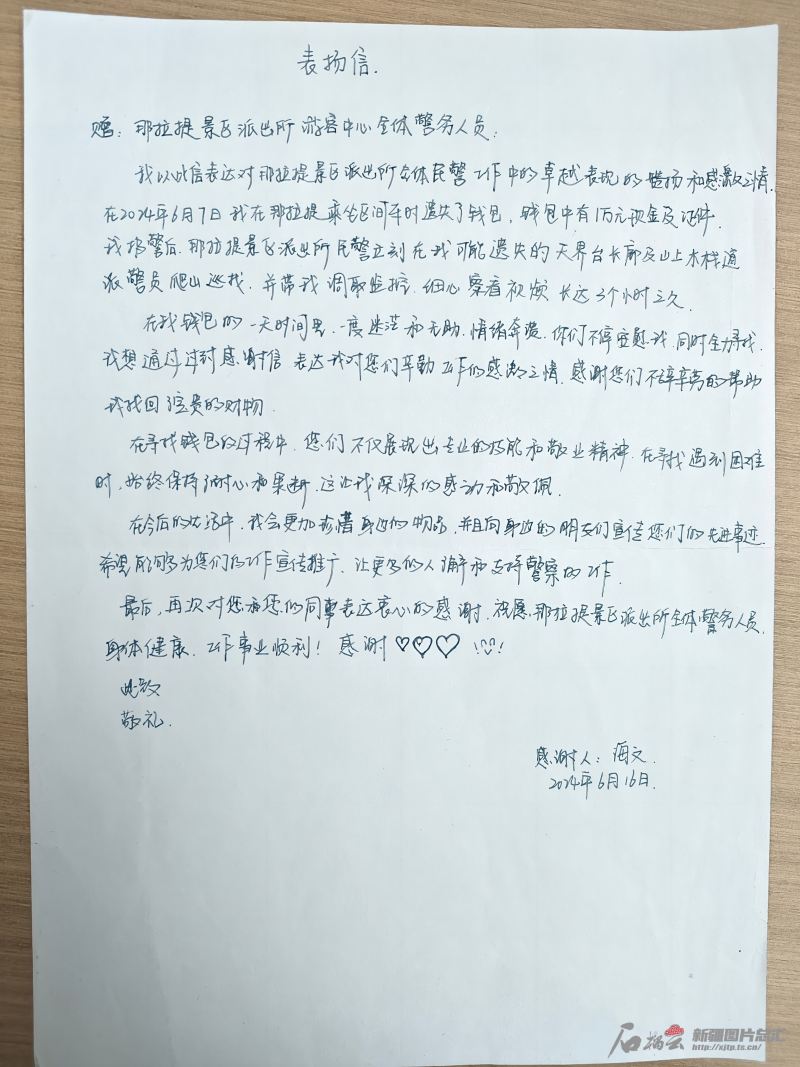 表扬信.
赠：那拉提景区派出所游客中心全体警务人员：
我以此信表达对那拉提景区派出所全体民警工作中的卓越表现的赞扬和感激之情.
在2024年6月7日我在那拉提乘坐区间车时遗失了钱包，钱包中有1万元现金及证件.
我报警后.那拉提景区派出所民警立刻在我可能遗失的天界台长廊及山上木栈道
派警员爬山巡找.并带我调取监控.细心察看视频长达3个小时之久.
在找钱包的一天时间里.一度迷茫和无助.情绪奔溃.你们不停安慰我.同时全力寻找.
我想通过这封感谢信表达我对您们辛勤工作的感激之情.感谢您们不辞辛劳的帮助
我找回珍贵的财物.
在寻找钱包的过程中.您们不仅展现出专业的技能和敬业精神.在寻找遇到困难
时.始终保持耐心和果断.这让我深深的感动和敬佩.
在今后的生活中.我会更加珍惜身边的物品.并且向身边的朋友们宣传您们的先进事迹.
希望能够为您们的工作宣传推广.让更多的人了解和支持警察的工作.
最后，再次对您和您的同事表达衷心的感谢.祝愿.那拉提景区派出所全体警务人员.
身体健康.工作事业顺利！感谢♡♡♡
此致
敬礼.
感谢人：海文
2024年6月16日.
石榴云
新疆图片总汇
http://xjtp.ts.cn/